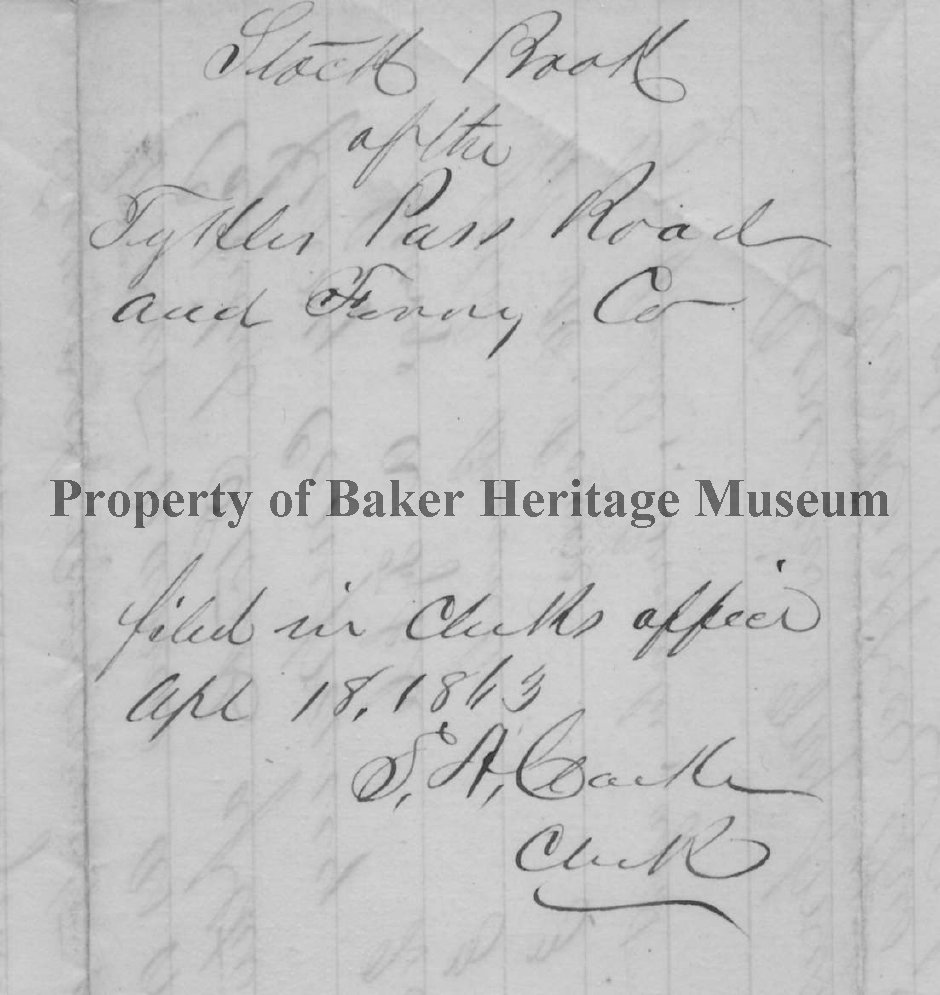 Stock Book
of the
Pass Road
and Ferry Co
Property of Baker Heritage Museum
filed in Clerks office
Apl 18, 1863
S. A. Clarke
Clerk